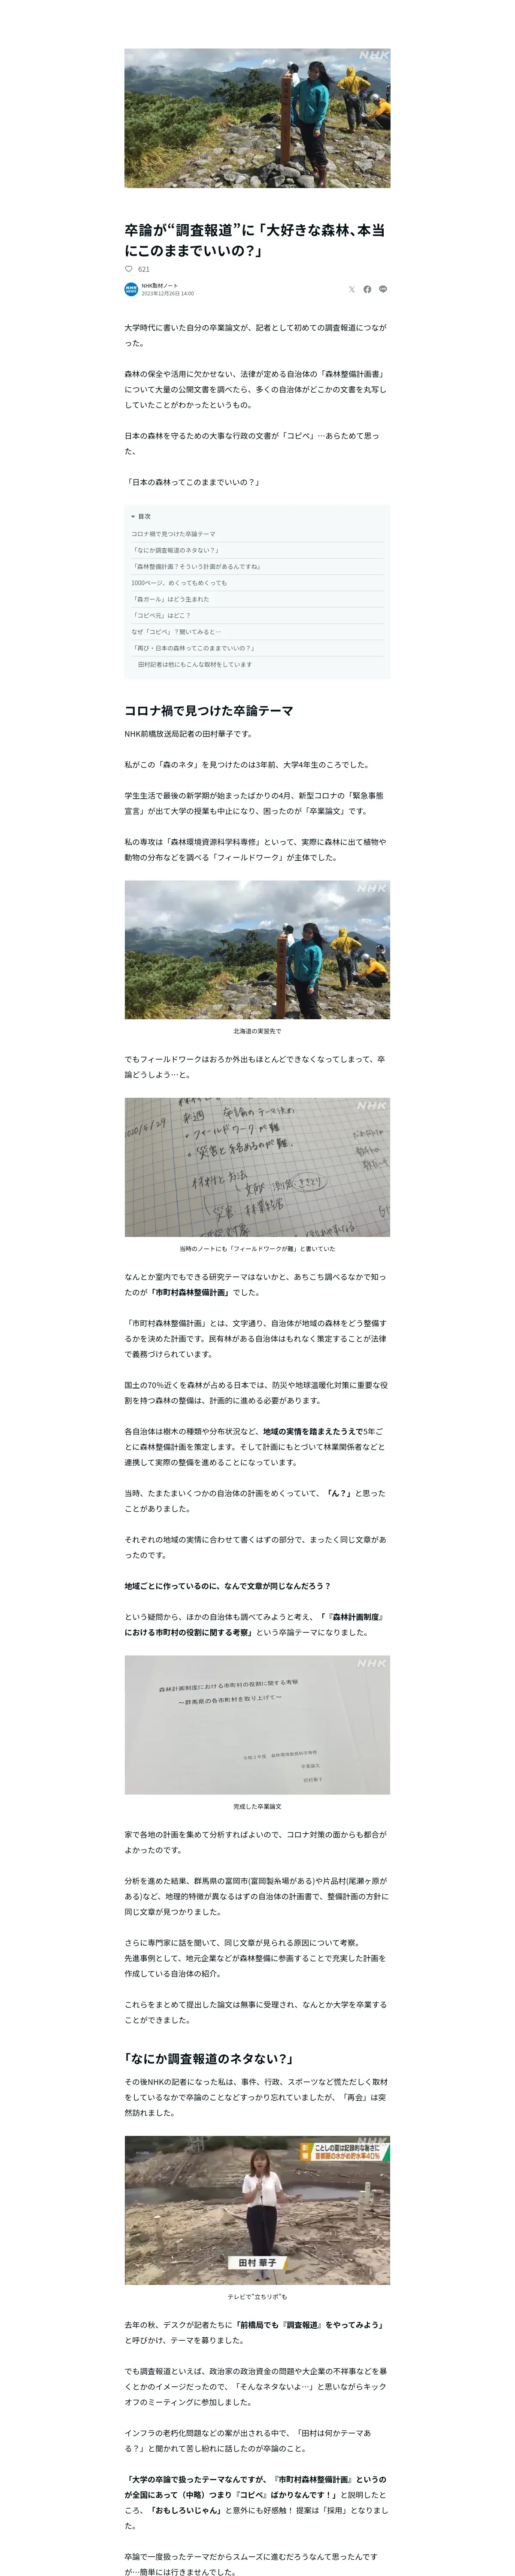 NHK
卒論が“調査報道”に「大好きな森林、本当
にこのままでいいの？」
621
NHK取材ノート
2023年12月26日 14:00
大学時代に書いた自分の卒業論文が、記者として初めての調査報道につなが
った。
森林の保全や活用に欠かせない、法律が定める自治体の「森林整備計画書」
について大量の公開文書を調べたら、多くの自治体がどこかの文書を丸写し
していたことがわかったというもの。
日本の森林を守るための大事な行政の文書が「コピペ」…あらためて思っ
た、
「日本の森林ってこのままでいいの？」
目次
コロナ禍で見つけた卒論テーマ
「なにか調査報道のネタない？」
「森林整備計画？そういう計画があるんですね」
1000ページ、めくってもめくっても
「森ガール」はどう生まれた
「コピペ元」はどこ？
なぜ「コピペ」？聞いてみると…
「再び・日本の森林ってこのままでいいの？」
田村記者は他にもこんな取材をしています
コロナ禍で見つけた卒論テーマ
NHK前橋放送局記者の田村華子です。
私がこの「森のネタ」を見つけたのは3年前、大学4年生のころでした。
学生生活で最後の新学期が始まったばかりの4月、新型コロナの「緊急事態
宣言」が出て大学の授業も中止になり、困ったのが「卒業論文」です。
私の専攻は「森林環境資源科学科専修」といって、実際に森林に出て植物や
動物の分布などを調べる「フィールドワーク」が主体でした。
NHK
北海道の実習先で
でもフィールドワークはおろか外出もほとんどできなくなってしまって、卒
論どうしよう…と。
NHK
2020/4/29
フィールドワークが難
災害と絡めるのが難.
材料と方法
当時のノートにも「フィールドワークが難」と書いていた
なんとか室内でもできる研究テーマはないかと、あちこち調べるなかで知っ
たのが「市町村森林整備計画」でした。
「市町村森林整備計画」とは、文字通り、自治体が地域の森林をどう整備す
るかを決めた計画です。民有林がある自治体はもれなく策定することが法律
で義務づけられています。
国土の70％近くを森林が占める日本では、防災や地球温暖化対策に重要な役
割を持つ森林の整備は、計画的に進める必要があります。
各自治体は樹木の種類や分布状況など、地域の実情を踏まえたうえで5年ご
とに森林整備計画を策定します。そして計画にもとづいて林業関係者などと
連携して実際の整備を進めることになっています。
当時、たまたまいくつかの自治体の計画をめくっていて、「ん？」と思った
ことがありました。
それぞれの地域の実情に合わせて書くはずの部分で、まったく同じ文章があ
ったのです。
地域ごとに作っているのに、なんで文章が同じなんだろう？
という疑問から、ほかの自治体も調べてみようと考え、「『森林計画制度』
における市町村の役割に関する考察」という卒論テーマになりました。
NHK
森林計画制度における市町村の役割に関する考察
～群馬県の各市町村を取り上げて～
令和2年度 森林環境資源科学専修
卒業論文
田村華子
完成した卒業論文
家で各地の計画を集めて分析すればよいので、コロナ対策の面からも都合が
よかったのです。
分析を進めた結果、群馬県の富岡市(富岡製糸場がある)や片品村(尾瀬ヶ原が
ある)など、地理的特徴が異なるはずの自治体の計画書で、整備計画の方針に
同じ文章が見つかりました。
さらに専門家に話を聞いて、同じ文章が見られる原因について考察。
先進事例として、地元企業などが森林整備に参画することで充実した計画を
作成している自治体の紹介。
これらをまとめて提出した論文は無事に受理され、なんとか大学を卒業する
ことができました。
「なにか調査報道のネタない？」
その後NHKの記者になった私は、事件、行政、スポーツなど慌ただしく取材
をしているなかで卒論のことなどすっかり忘れていましたが、「再会」は突
然訪れました。
NHK
ことしの夏は記録的な暑さに
首都圏の水がめ貯水率40％
田村 華子
テレビで”立ちリポ”も
去年の秋、デスクが記者たちに「前橋局でも『調査報道』をやってみよう」
と呼びかけ、テーマを募りました。
でも調査報道といえば、政治家の政治資金の問題や大企業の不祥事などを暴
くとかのイメージだったので、「そんなネタないよ…」と思いながらキック
オフのミーティングに参加しました。
インフラの老朽化問題などの案が出される中で、「田村は何かテーマあ
る？」と聞かれて苦し紛れに話したのが卒論のこと。
「大学の卒論で扱ったテーマなんですが、『市町村森林整備計画』というの
が全国にあって（中略）つまり『コピペ』ばかりなんです！」と説明したと
ころ、「おもしろいじゃん」と意外にも好感触！ 提案は「採用」となりまし
た。
卒論で一度扱ったテーマだからスムーズに進むだろうなんて思ったんです
が…簡単には行きませんでした。